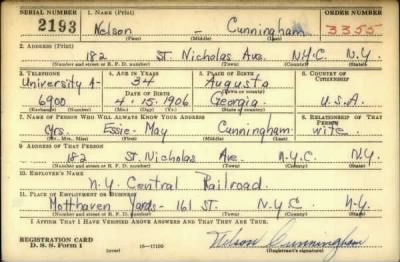 SERIAL NUMBER 1. NAME (Print) ORDER NUMBER
2193 Nelson - Cunningham 3355
(First) (Middle) (Last)
2. ADDRESS (Print)
182 St. Nicholas Ave. N.Y.C. N.Y.
(Number and street or R. F. D. number) (Town) (County) (State)
3. TELEPHONE 4. AGE IN YEARS 5. PLACE OF BIRTH 6. COUNTRY OF CITIZENSHIP
University 4- 34 Augusta
DATE OF BIRTH (Town or county)
6900 4-15-1906 Georgia U.S.A.
(Exchange) (Number) (Mo.) (Day) (Yr.) (State or country)
7. NAME OF PERSON WHO WILL ALWAYS KNOW YOUR ADDRESS 8. RELATIONSHIP OF THAT PERSON
Mrs. Essie-May Cunningham wife
(Mr., Mrs., Miss) (First) (Middle) (Last)
9. ADDRESS OF THAT PERSON
182 St. Nicholas Ave. N.Y.C. N.Y.
(Number and street or R. F. D. number) (Town) (County) (State)
10. EMPLOYER'S NAME
N.Y. Central Railroad.
11. PLACE OF EMPLOYMENT OR BUSINESS
Motthaven Yards- 161 St. N.Y.C. N.Y.
(Number and street or R. F. D. number) (Town) (County) (State)
I AFFIRM THAT I HAVE VERIFIED ABOVE ANSWERS AND THAT THEY ARE TRUE.
REGISTRATION CARD
D. S. S. Form 1 Nelson Cunningham
(Registrant's signature)